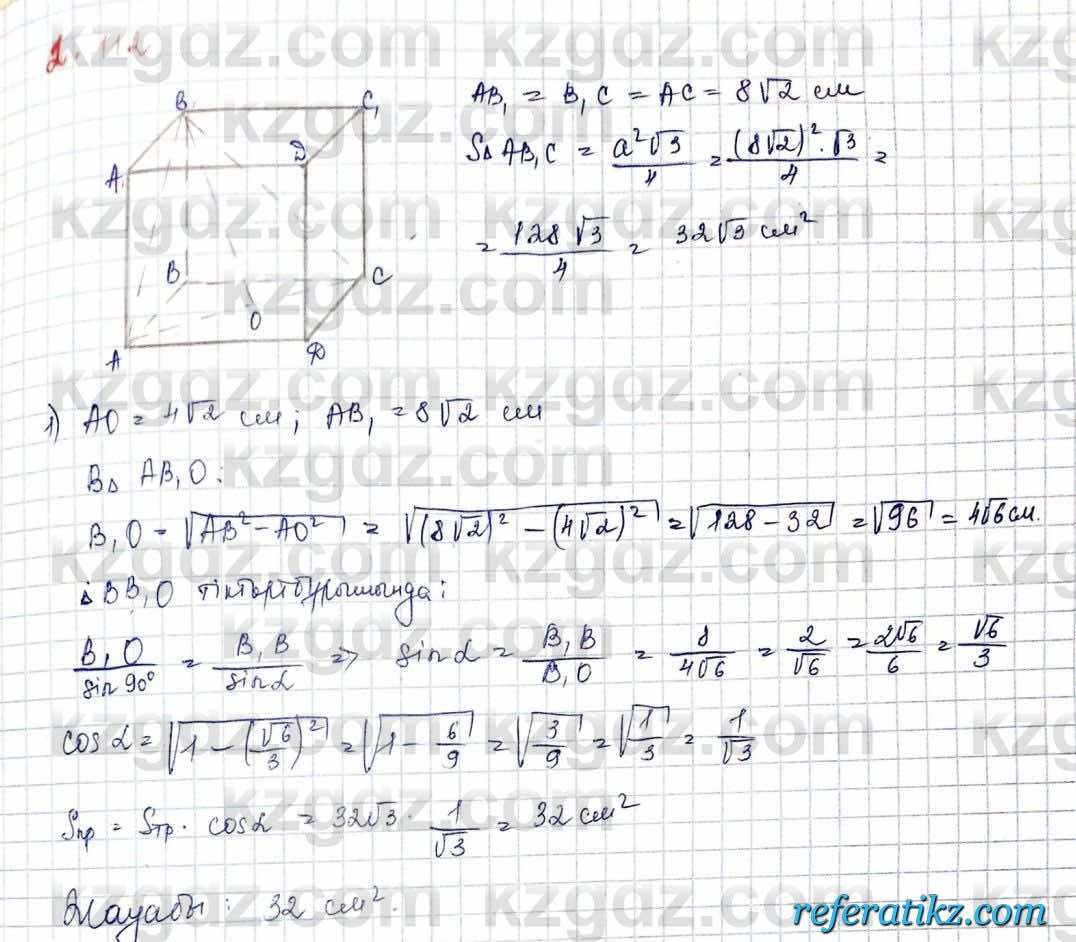 2.112
B₁ C₁
A₁ D₁
B C
O
A D
AB₁ = B₁C = AC = 8√2 см
S△AB₁C = a²√3/4 = (8√2)²·√3/4 =
= 128√3/4 = 32√3 см²
1) AO = 4√2 см; AB₁ = 8√2 см
B△ AB₁O:
B₁O = √(AB² − AO²) = √((8√2)² − (4√2)²) = √(128 − 32) = √96 = 4√6 см.
△BB₁O тіктөртбұрышында:
B₁O/sin 90° = B₁B/sin α => sin α = B₁B/B₁O = 8/4√6 = 2/√6 = 2√6/6 = √6/3
cos α = √(1 − (√6/3)²) = √(1 − 6/9) = √(3/9) = √(1/3) = 1/√3
Sпр = Sтр · cos α = 32√3 · 1/√3 = 32 см²
Жауабы: 32 см².
kzgdz.com
referatikz.com